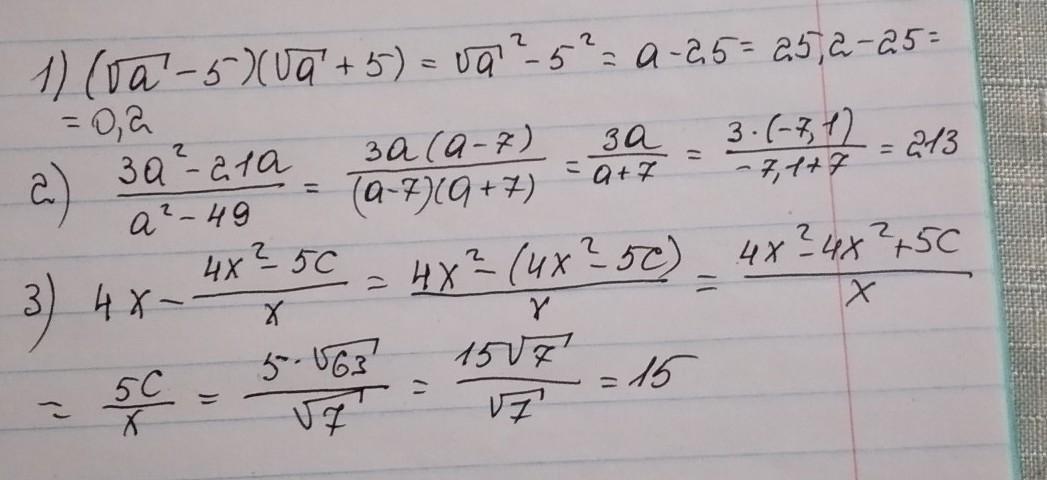 1) (√a - 5)(√a + 5) = √a² - 5² = a - 25 = 25,2 - 25 =
= 0,2
2) (3a² - 21a)/(a² - 49) = (3a(a - 7))/((a-7)(a+7)) = 3a/(a+7) = (3·(-7,1))/(-7,1+7) = 213
3) 4x - (4x² - 5c)/x = (4x² - (4x² - 5c))/x = (4x² - 4x² + 5c)/x
= 5c/x = (5·√63)/√7 = (15√7)/√7 = 15